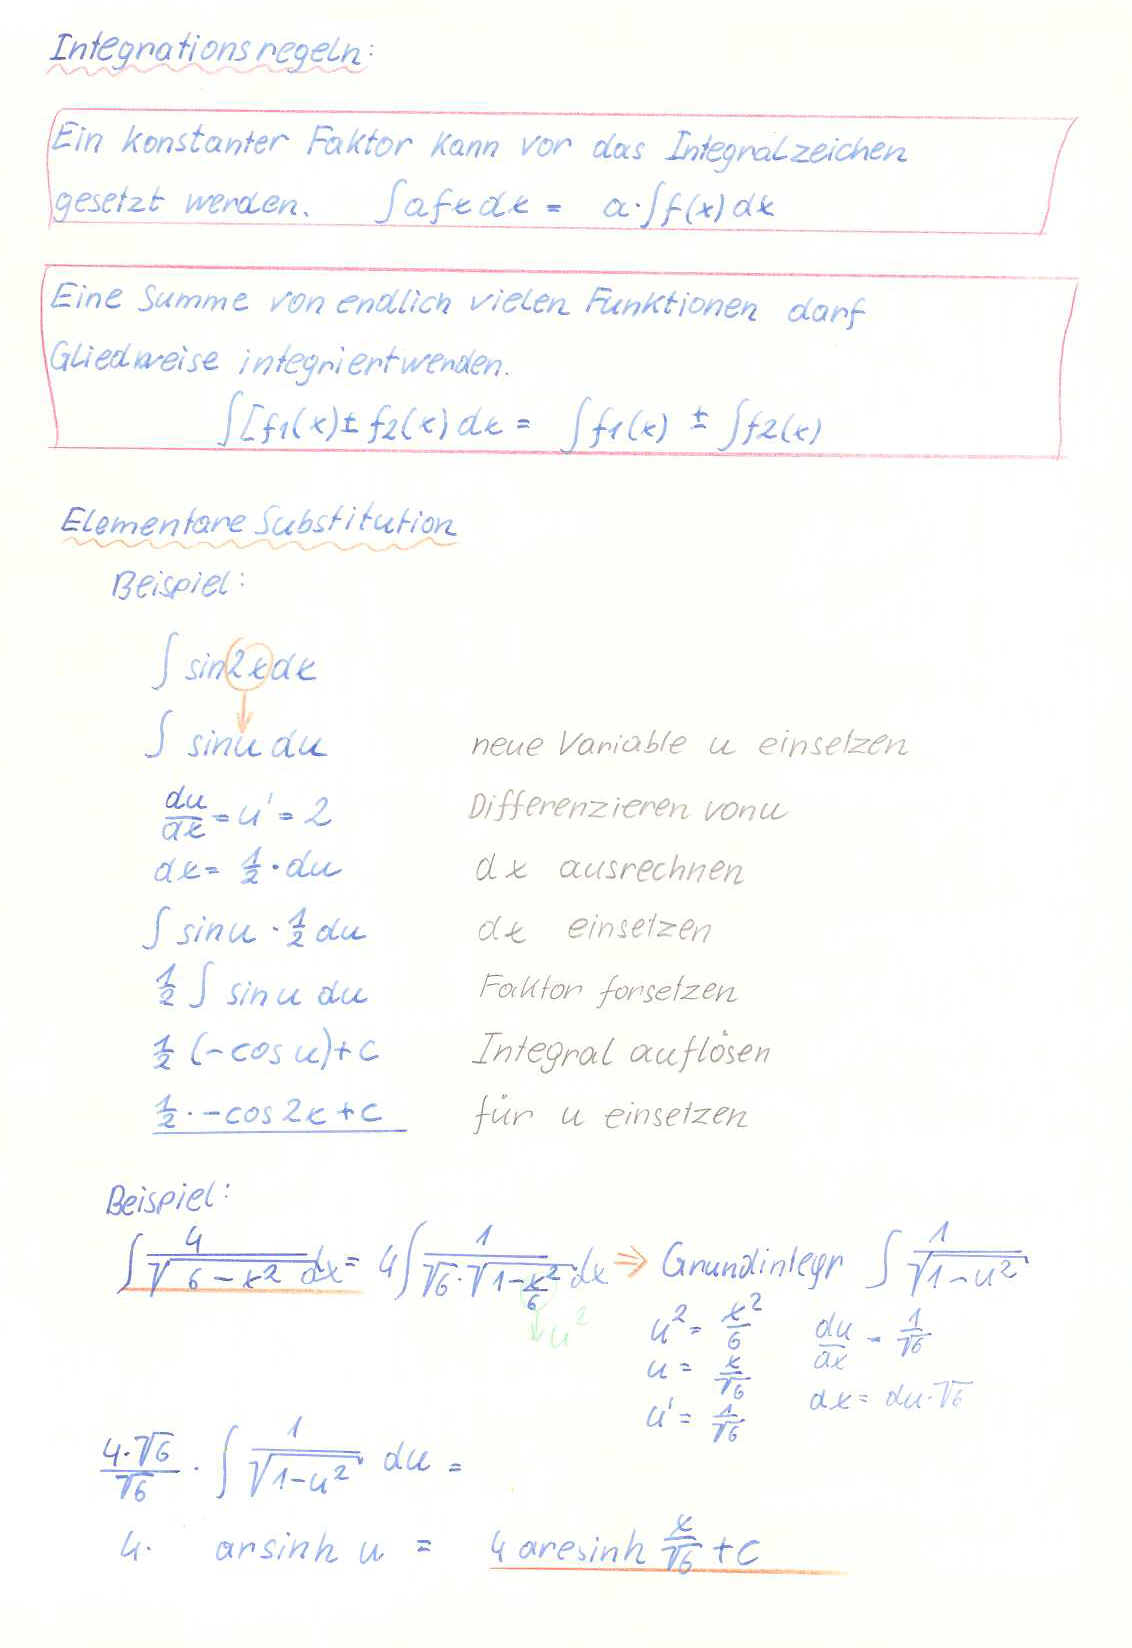 Integrationsregeln:
Ein konstanter Faktor kann vor das Integralzeichen
gesetzt werden. ∫afxdx = a·∫f(x)dx
Eine Summe von endlich vielen Funktionen darf
Gliedweise integriert werden.
∫[f1(x)±f2(x)dx = ∫f1(x) ± ∫f2(x)
Elementare Substitution
Beispiel:
∫ sin2xdx
∫ sinu du neue Variable u einsetzen
du/dx = u' = 2 Differenzieren von u
dx = 1/2 · du dx ausrechnen
∫ sinu · 1/2 du dx einsetzen
1/2 ∫ sin u du Faktor forsetzen
1/2 (-cos u)+c Integral auflösen
1/2 · -cos 2x + c für u einsetzen
Beispiel:
∫ 4/√(6-x²) dx = 4∫ 1/(√6·√(1-x²/6)) dx ⇒ Grundintegr ∫ 1/√(1-u²)
u² u² = x²/6 du/dx = 1/√6
u = x/√6 dx = du·√6
u' = 1/√6
4·√6/√6 · ∫ 1/√(1-u²) du =
4· arsinh u = 4 arcsinh x/√6 + c